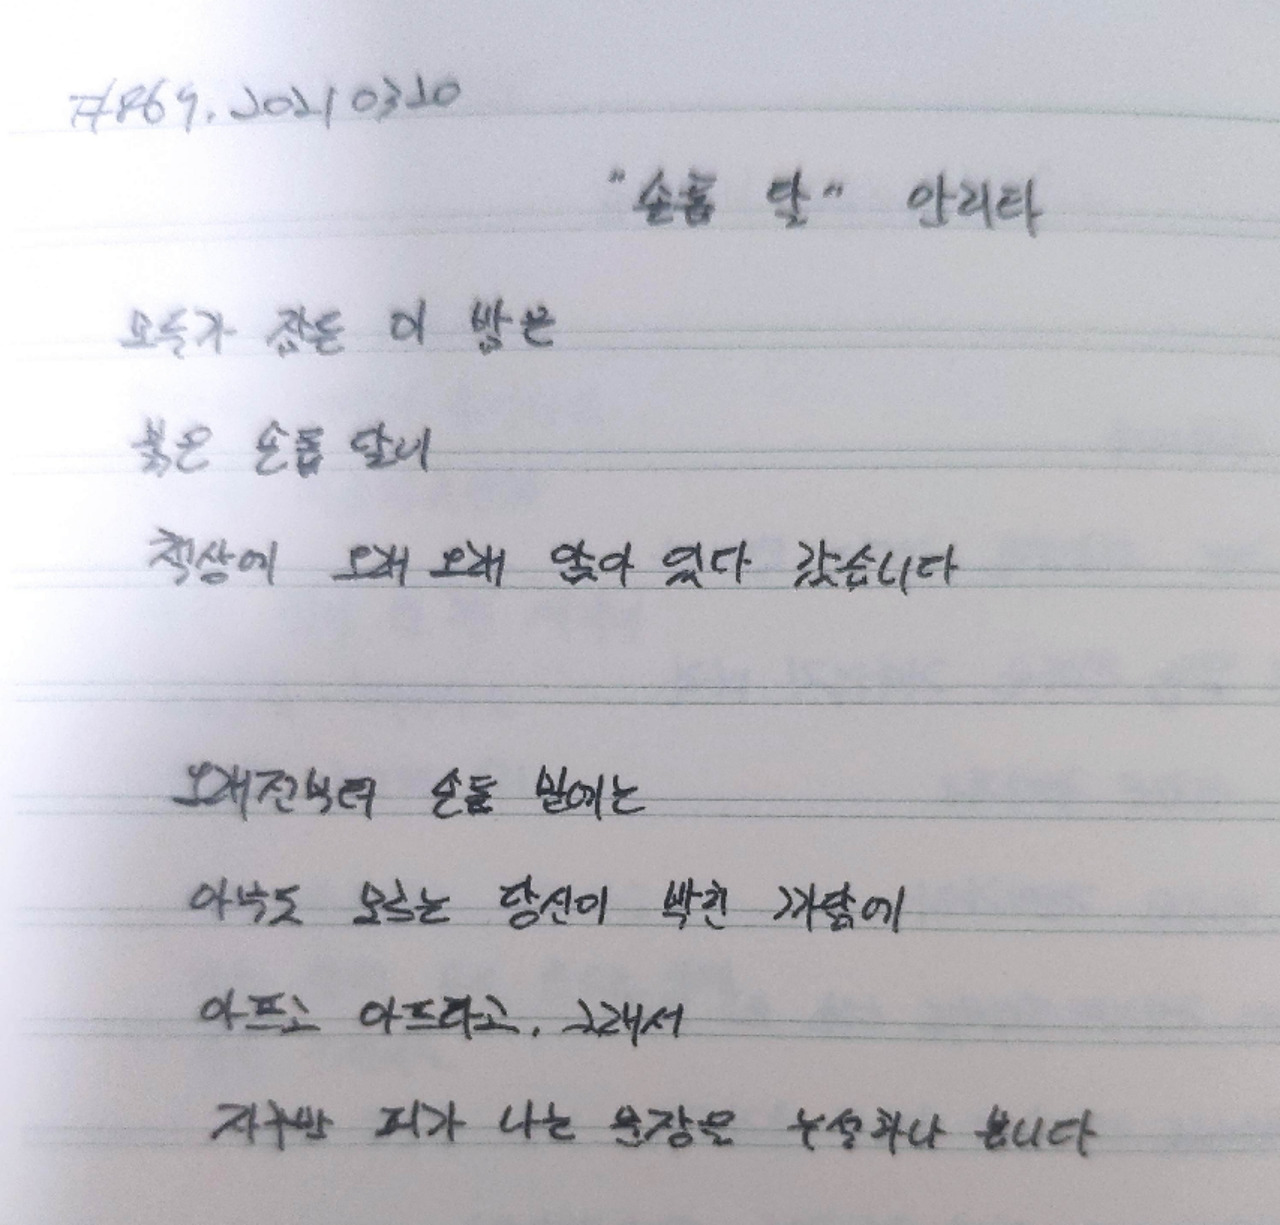 #869. 20210320
"손톱 달" 안리타
모두가 잠든 이 밤은
붉은 손톱 달이
책상에 오래 오래 앉아 있다 갔습니다
오래전부터 손톱 밑에는
아무도 모르는 당신이 박힌 까닭에
아프고 아프라고, 그래서
자꾸만 피가 나는 문장을 누설하나 봅니다